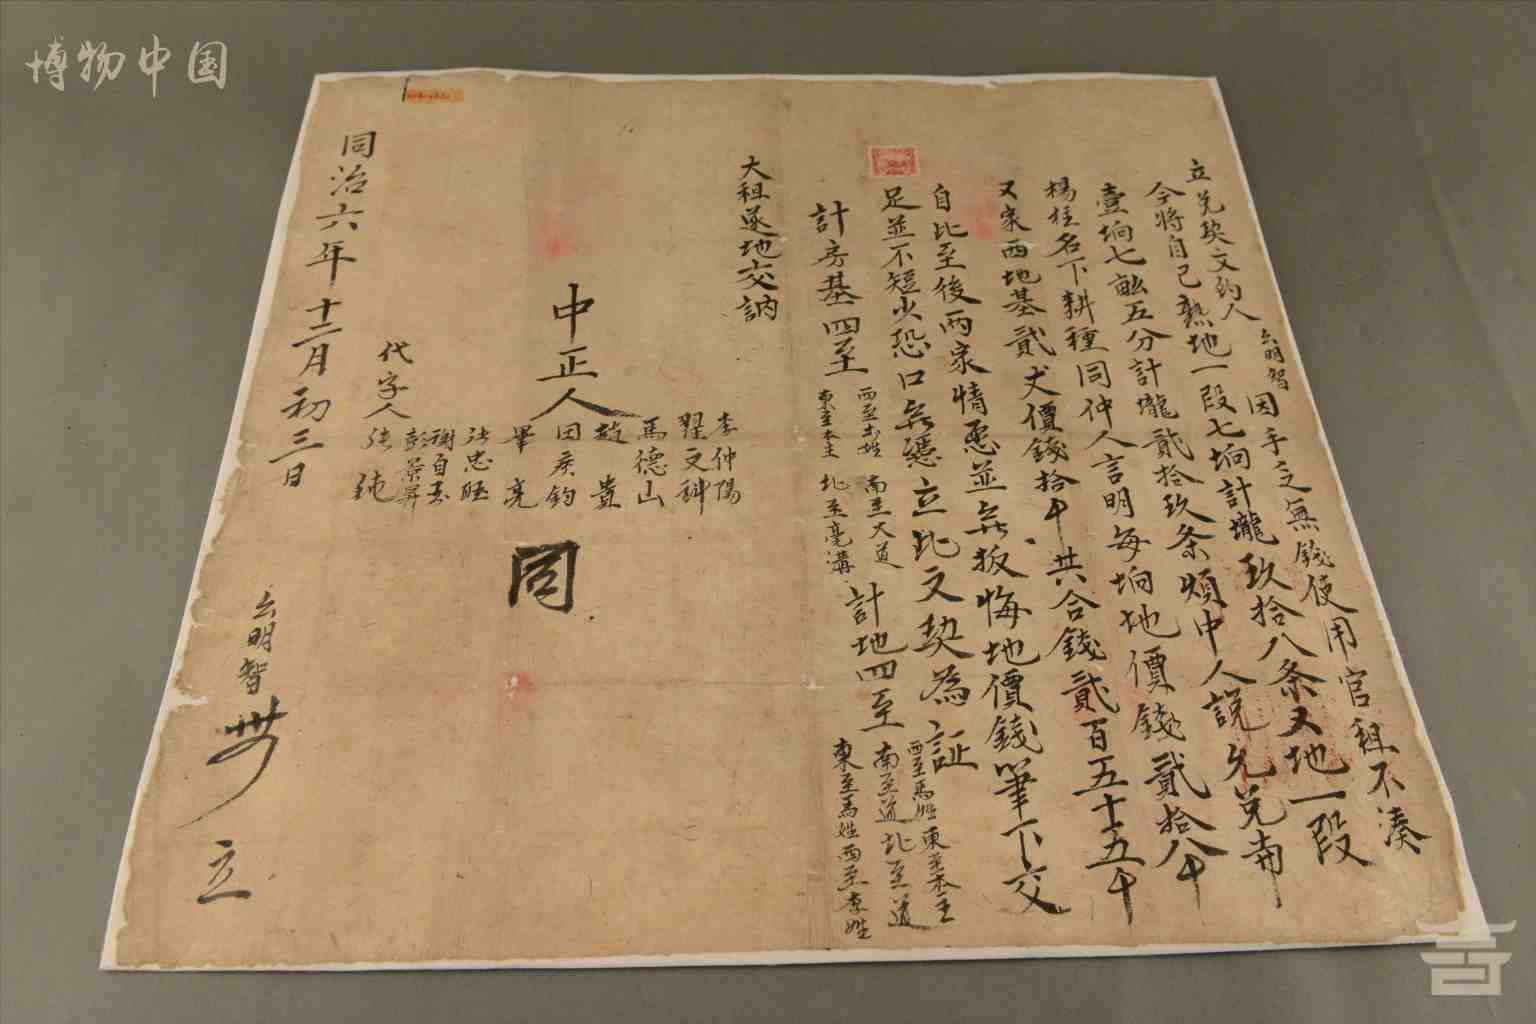 博物中国
立兑契文約人么明智因手乏無錢使用官租不湊
今將自己熟地一段七垧計壠玖拾八条又地一段
壹垧七畝五分計壠貳拾玖条煩中人説允兑與
楊 名下耕種同仲人言明每垧地價錢貳拾八千
又家西地基貳丈價錢拾千共合錢貳百五十五千
自此至後兩家情愿並無扳悔地價錢筆下交
足並不短少恐口無憑立此文契為証
計房基四至
西至 姓
東至本主
南至大道
北至毫溝
計地四至
西至馬姓東至本主
南至道北至道
東至馬姓西至李姓
大租遂地交訥
中正人
李仲陽
翟文科
馬德山
趙貴
田 鈞
畢亮
忠
謝自
彭景昇
同
代字人
張純
同治六年十二月初三日
么明智 立